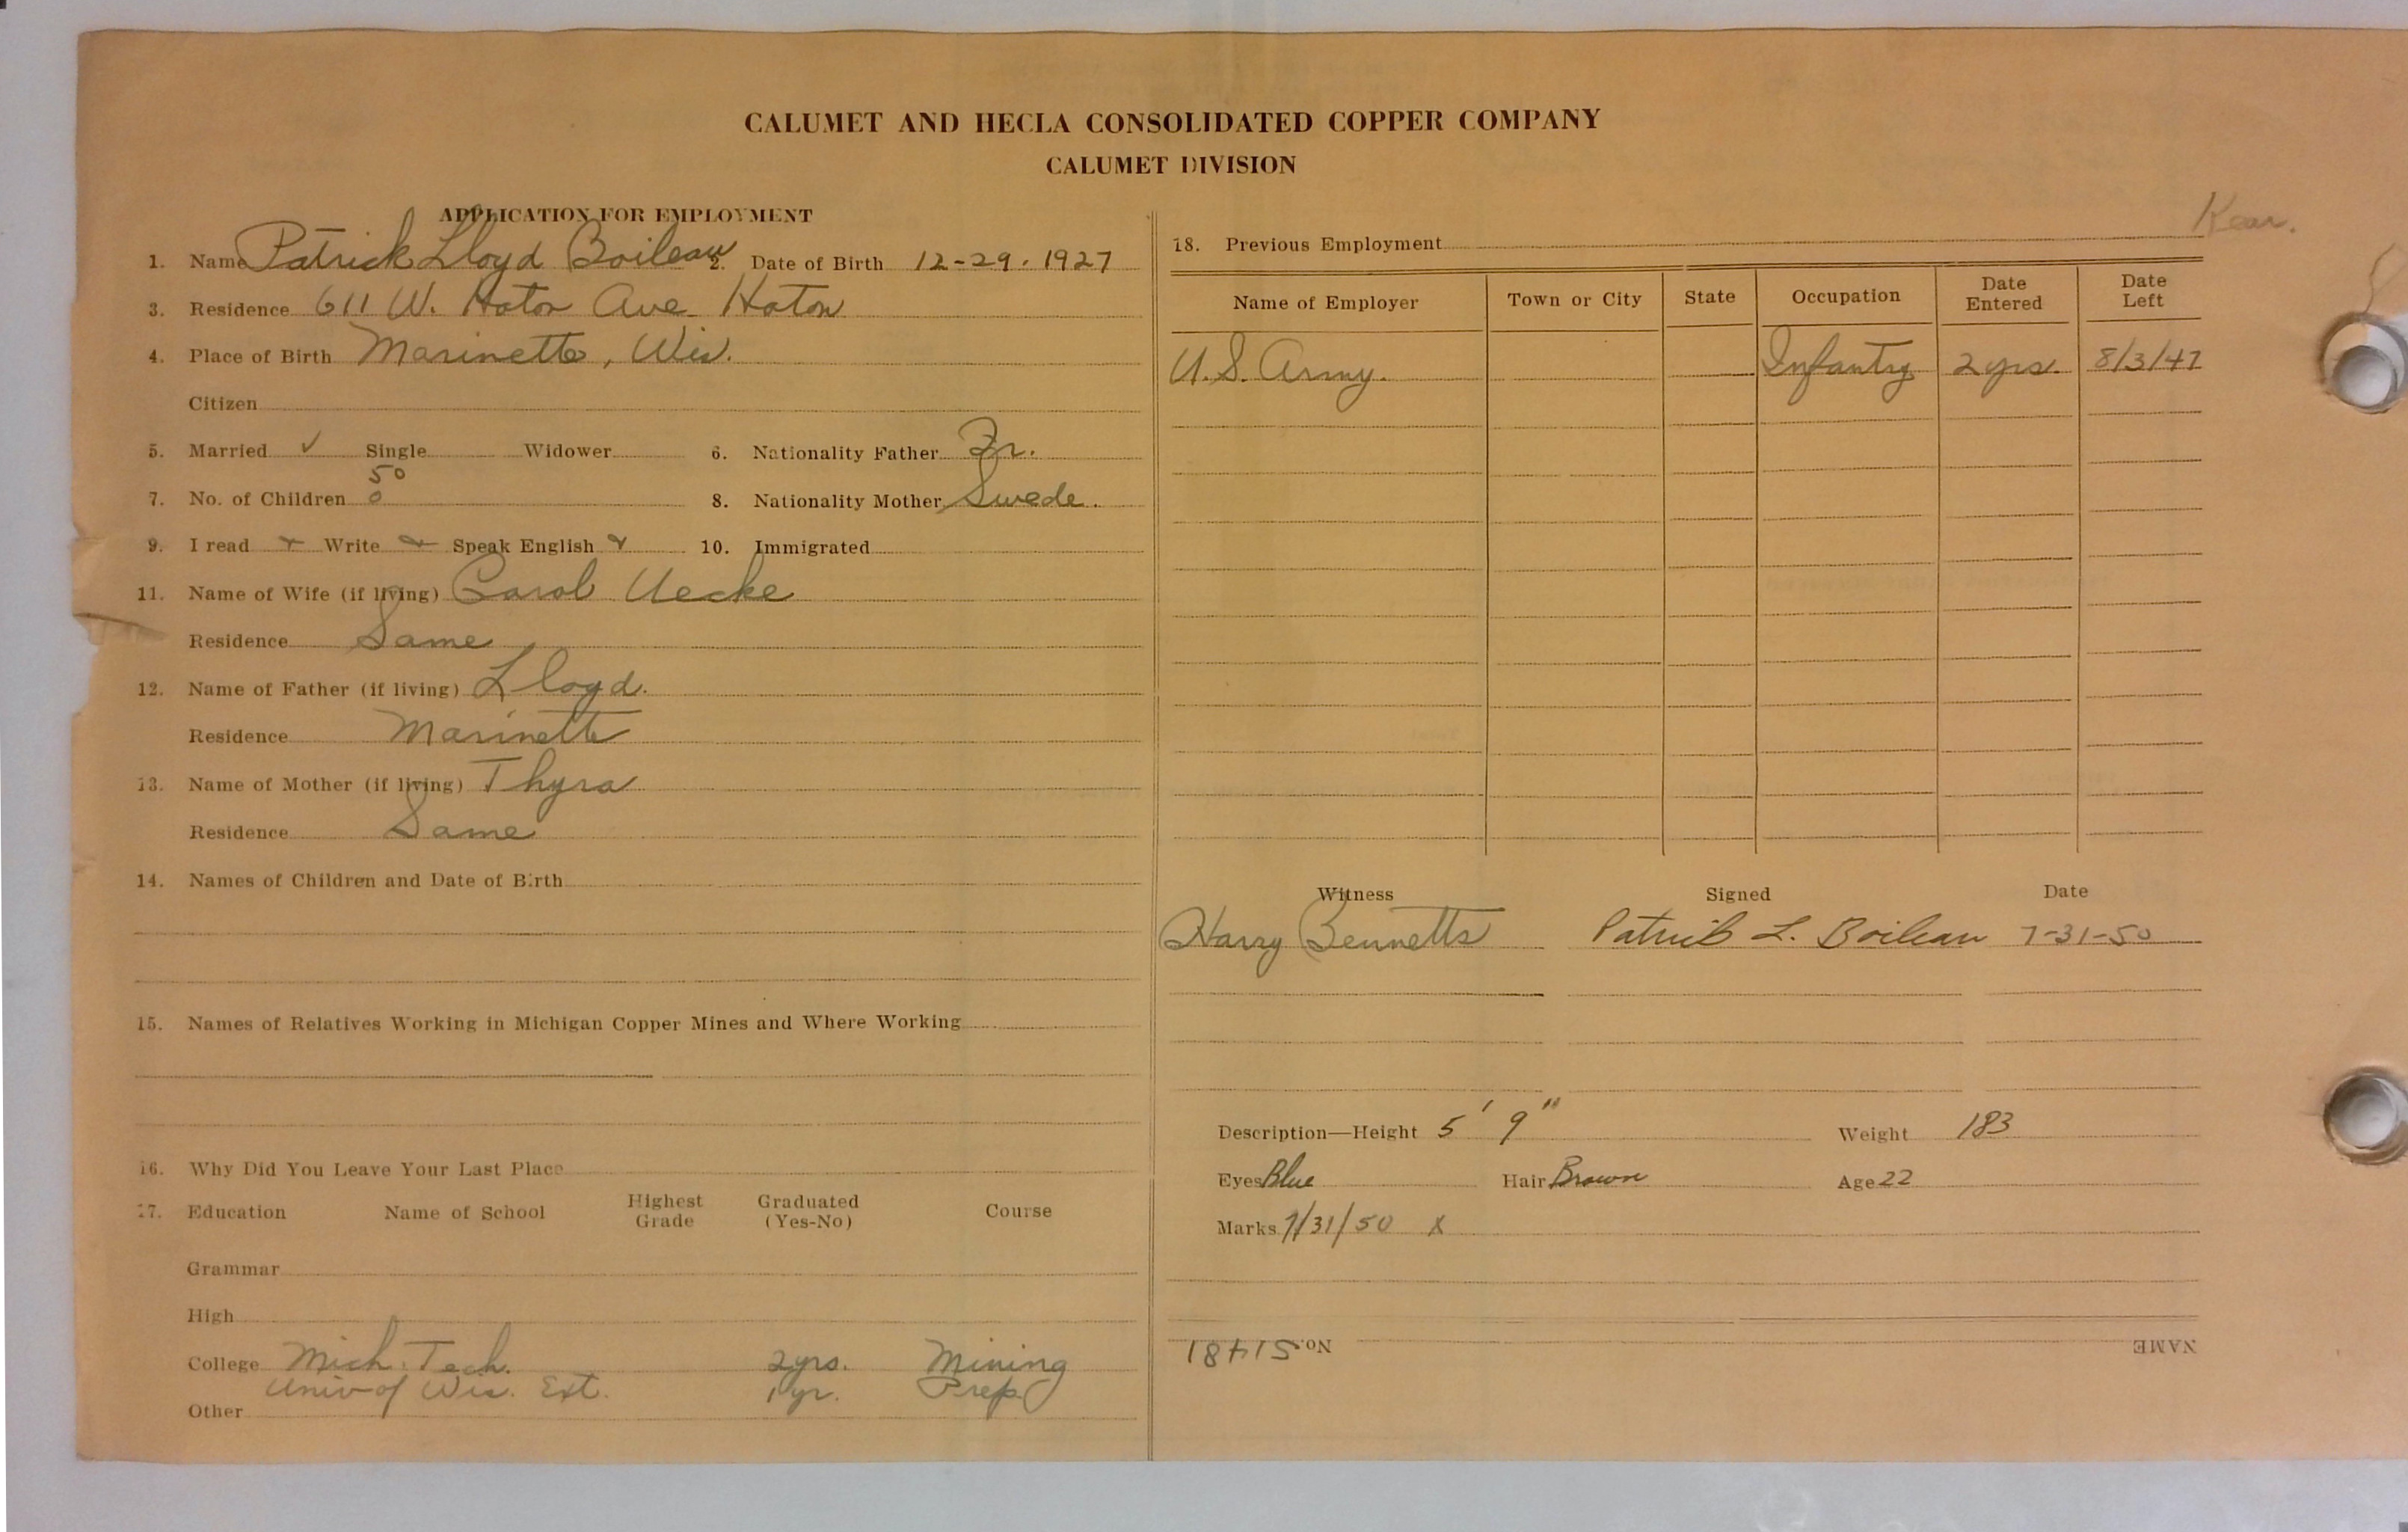 CALUMET AND HECLA CONSOLIDATED COPPER COMPANY
CALUMET DIVISION
APPLICATION FOR EMPLOYMENT
1. Name Patrick Lloyd Boileau 2. Date of Birth 12-29-1927
3. Residence 611 W. Hoton Ave. Hoton
4. Place of Birth Marinette, Wis.
Citizen
5. Married ✓ Single Widower 6. Nationality Father Fr.
50
7. No. of Children 0 8. Nationality Mother Swede.
9. I read Write Speak English 10. Immigrated
11. Name of Wife (if living) Carol Uecke
Residence Same
12. Name of Father (if living) Lloyd.
Residence Marinette
13. Name of Mother (if living) Thyra
Residence Same
14. Names of Children and Date of Birth
15. Names of Relatives Working in Michigan Copper Mines and Where Working
16. Why Did You Leave Your Last Place
17. Education Name of School Highest Grade Graduated (Yes-No) Course
Grammar
High
College Mich. Tech. 2yrs. Mining
Univ of Wis. Ext. 1 yr. Prep.
Other
Kear.
18. Previous Employment
Name of Employer Town or City State Occupation Date Entered Date Left
U.S. Army. Infantry 2 yrs. 8/3/47
Witness Signed Date
Harry Bennetts Patrick L. Boileau 7-31-50
Description—Height 5' 9" Weight 183
Eyes Blue Hair Brown Age 22
Marks 7/31/50 X
NAME No. 51481